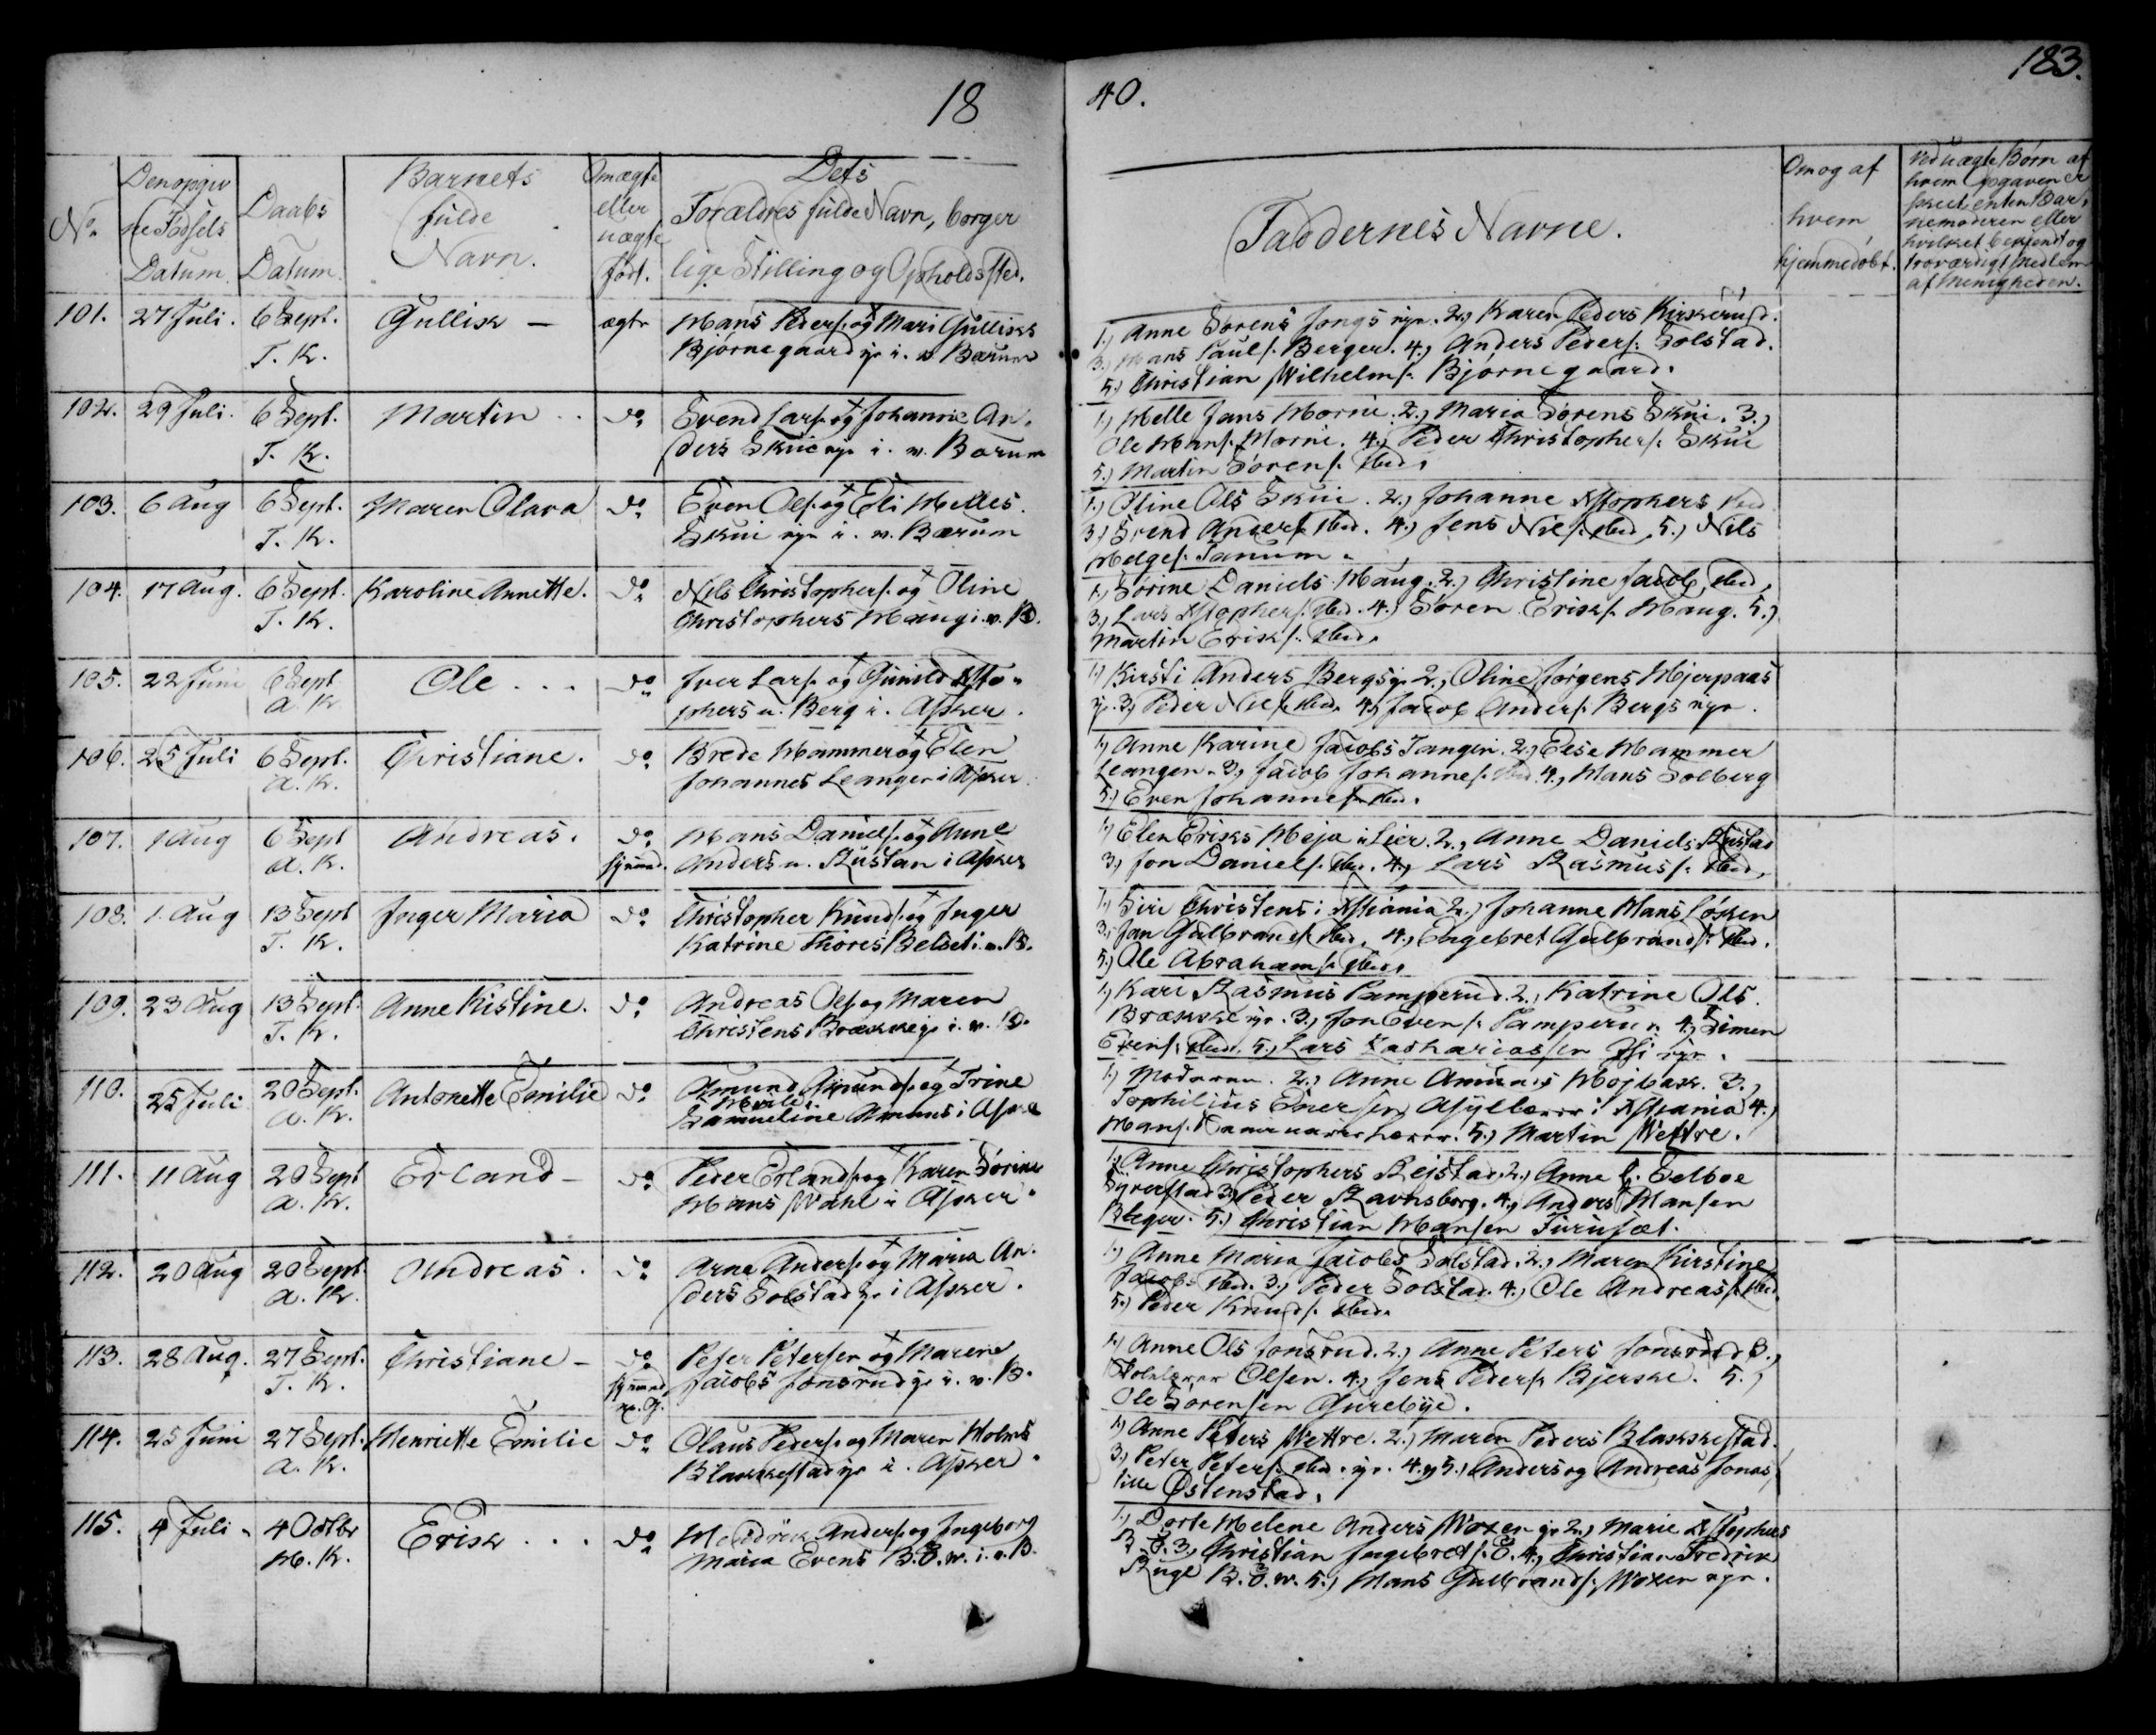 18
40.
183.
No.
Den opgiv
ne Fødsels
Datum.
Daabs
Datum.
Barnets
fulde
Navn.
Om ægte
eller
uægte
født.
Dets
Forældres fulde Navn, borger
lige Stilling og Opholdssted.
Faddernes Navne.
Om og af
hvem
hjemmedøbt.
Ved uægte Børn af
hvem Opgaven er
skeet, enten Bar-
nemoderen eller
hvilket bekjendt og
troværdigt Medlem
af Menigheden.
101. 27 Juli. 6 Sept. Gullik – ægte Hans Peders. og Mari Gulliks
T. K. Bjørnegaard i. v. Bærum
1., Anne Sørens Jongs 2., Karen Peders Kirkerud.
3., Hans Pauls. Berger. 4., Anders Peders. Solstad.
5., Christian Wilhelms. Bjørnegaard.
102. 29 Juli. 6 Sept. Martin . . do. Svend Lars. og Johanne An-
T. K. ders Skui i. v. Bærum
1., Helle Hans Horni. 2., Maria Sørens Skui. 3.,
Ole Hans. Horni. 4., Peder Christophers. Skui
5., Martin Sørens. sted.
103. 6 Aug 6 Sept. Maren Olava do. Even Ols. og Eli Helles.
T. K. Skui i. v. Bærum
1., Oline Ols Skui. 2., Johanne Xstophers sted
3., Svend Anders. sted. 4., Jens Nils. sted. 5., Nils
Helges. Tanum.
104. 17 Aug. 6 Sept. Karoline Annette. do. Nils Christophers. og Oline
T. K. Christophers Haug i. v. B.
1., Sørine Daniels Haug. 2., Christine Jacob, sted,
3., Lars Xstophers. sted. 4., Søren Eriks. Haug. 5.,
Martin Eriks. sted.
105. 22 Juni 6 Sept Ole . . . do. Iver Lars. og Gunild Xsto-
A. K. phers u. Berg i. Asker.
1., Kirsti Anders Bergs 2., Oline Jørgens Hjerpaas
3., Peder Nils. sted. 4., Jacob Anders. Bergs
106. 25 Juli 6 Sept. Christiane. do. Brede Hammer og Elen
A. K. Johannes Leangen i Asker
1., Anne Karine Jacobs Tangen. 2., Else Hammer
Leangen. 3., Jacob Johannes. sted. 4., Hans Solberg
5., Even Johannes. sted.
107. 1 Aug 6 Sept Andreas. do. Hans Daniels. og Anne
A. K. Anders u. Rustan i Asker
1., Elen Eriks Heja i Lier. 2., Anne Daniels Rustad
3., Jon Daniels. sted. 4., Lars Rasmuss. sted,
108. 1. Aug 13 Sept Inger Maria do. Christopher Knuds. og Inger
T. K. Katrine Thores Belset i. v. B.
1., Siri Christens i Xstiania 2., Johanne Hans Løken
3., Jon Gulbrands. sted. 4., Engebret Gulbrands. sted.
5., Ole Abrahams. sted.
109. 23 Aug 13 Sept. Anne Kistine. do. Andreas Ols. og Maren
T. K. Christens Brække i. v. B.
1., Kari Rasmus Pamperud. 2., Katrine Ols.
Brække 3., Jon Evens. Pamperud. 4., Simen
Evens. sted. 5., Lars Zachariassen
110. 25 Juli 20 Sept. Antonette Emilie do. Amund Amunds. og Trine
A. K. Samueline Amunds i Asker
1., Moderen. 2., Anne Amunds Højbak. 3.,
Tophilius Enersen Asyllærer i Xstiania 4.,
Hans. 5., Martin Wettre.
111. 11 Aug 20 Sept Erland – do. Peder Erlands. og Karen Sørine
A. K. Hans Wahl i Asker.
1., Anne Christophers Rejstad. 2., Anne Selboe
Syverstad 3., Peder Ravnsborg. 4., Anders Hansen
5., Christian Hansen Furuset.
112. 20 Aug 20 Sept. Andreas. do. Arne Anders. og Maria An-
A. K. ders Solstad i Asker.
1., Anne Maria Jacobs Solstad. 2., Maren Kirstine
Jacobs sted. 3., Peder Solstad. 4., Ole Andreass. sted.
5., Peder Knuds. sted.
113. 28 Aug. 27 Sept. Christiane – do. Peter Petersen og Maren
T. K. Jacobs Jonsrud i. v. B.
1., Anne Ols Jonsrud. 2., Anne Peters Jonsrud 3.,
Skolelærer Olsen. 4., Jens Peders. Bjerske. 5.,
Ole Sørensen Gurebye.
114. 25 Juni 27 Sept. Henriette Emilie do. Olaus Peders. og Maren Holms
A. K. Blakkestad i. Asker.
1., Anne Peters Wettre. 2., Maren Peders Blakkestad.
3., Peter Peters. sted. 4. og 5., Anders og Andreas Jonas,
lille Østenstad.
115. 4 Juli. 4 Octbr Erik . . . do. Hendrik Anders. og Ingeborg
H. K. Maria Evens B. i. v. B.
1., Dorte Helene Anders Woxen 2., Marie Xstophers
3., Christian Ingebrets. 4., Christian Fredrik
Ruge 5., Hans Gulbrands. Woxen